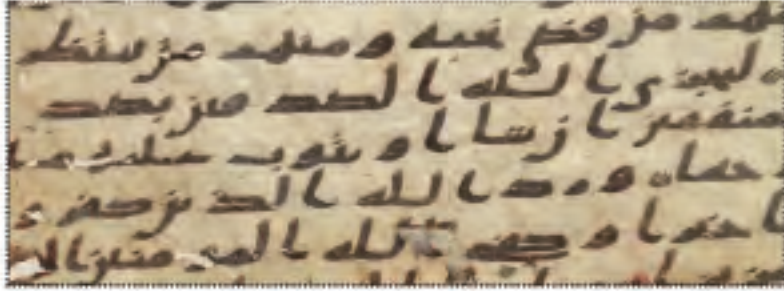 منهم من قضى نحبه ومنهم من ينتظر
ليجزي الله الصدقين بصد
منفقين ان شا او يتوب عليهم ا
حيما ورد الله الذين كفرو
ا خيرا وكفى الله المومنين ال